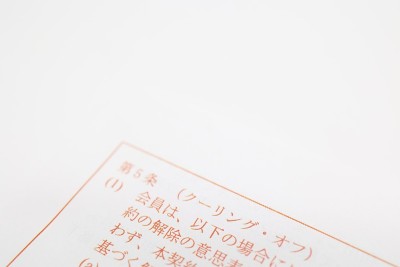 第5条 (クーリング・オフ)
(1) 会員は、以下の場合に
約の解除の意思
わず、本契
基づく